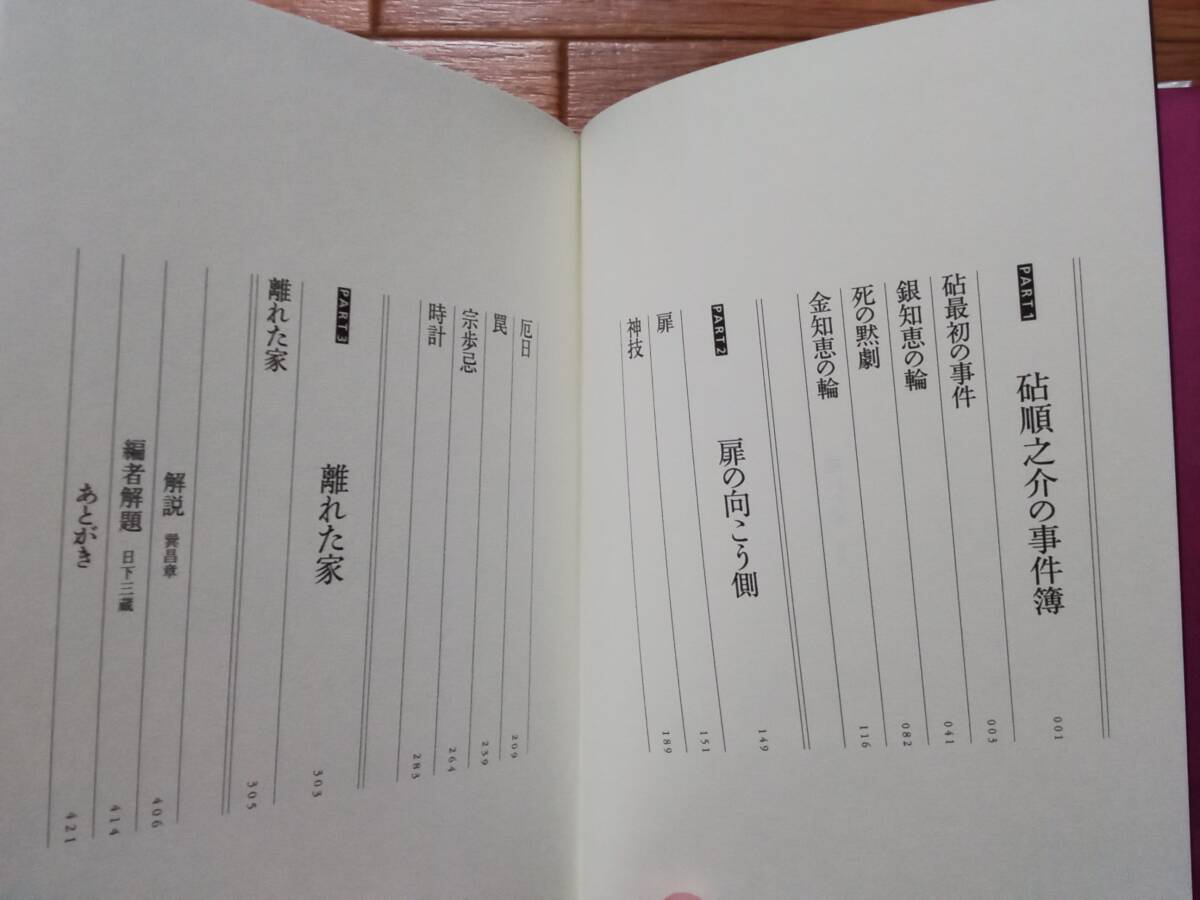 PART 1 砧順之介の事件簿 001
砧最初の事件 003
銀知恵の輪 041
死の黙劇 082
金知恵の輪 116
PART 2 扉の向こう側 149
扉 151
神技 189
厄日 209
罠 239
宗歩忌 264
時計 283
PART 3 離れた家 303
離れた家 305
解説 巽昌章 406
編者解題 日下三蔵 414
あとがき 421